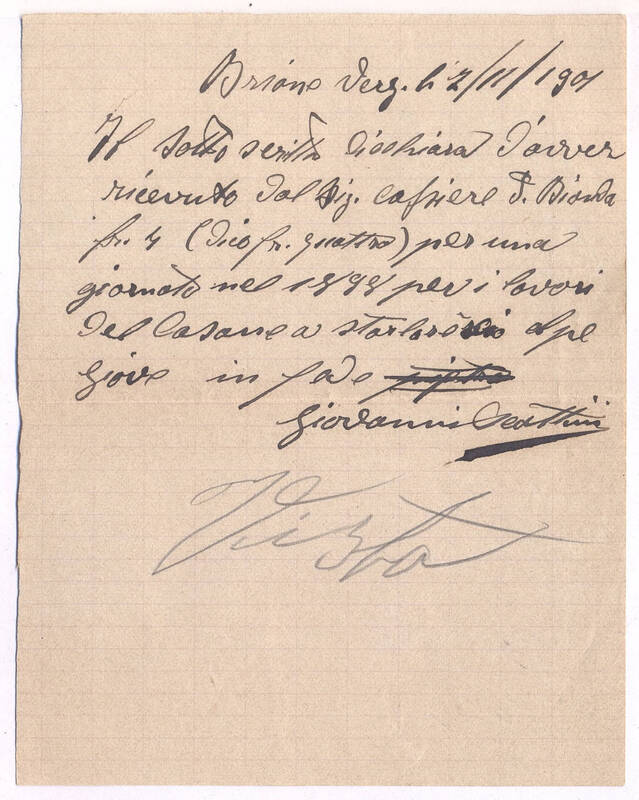 Brione Verz. li 2/11/1901
Il sotto scritto dichiara d'aver
ricevuto dal Sig. cassiere T. Bionda
fr. 4 (dico fr. quattro) per una
giornata nel 1898 per i lavori
del Casone a alpe
Giove in fede
Giovanni
Vista